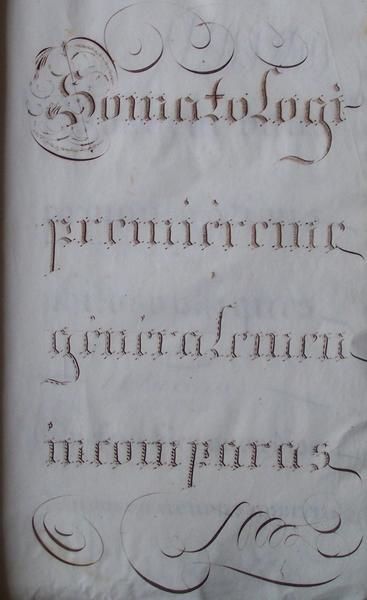 Somatologi-
premièreme
généralemen
incomparas